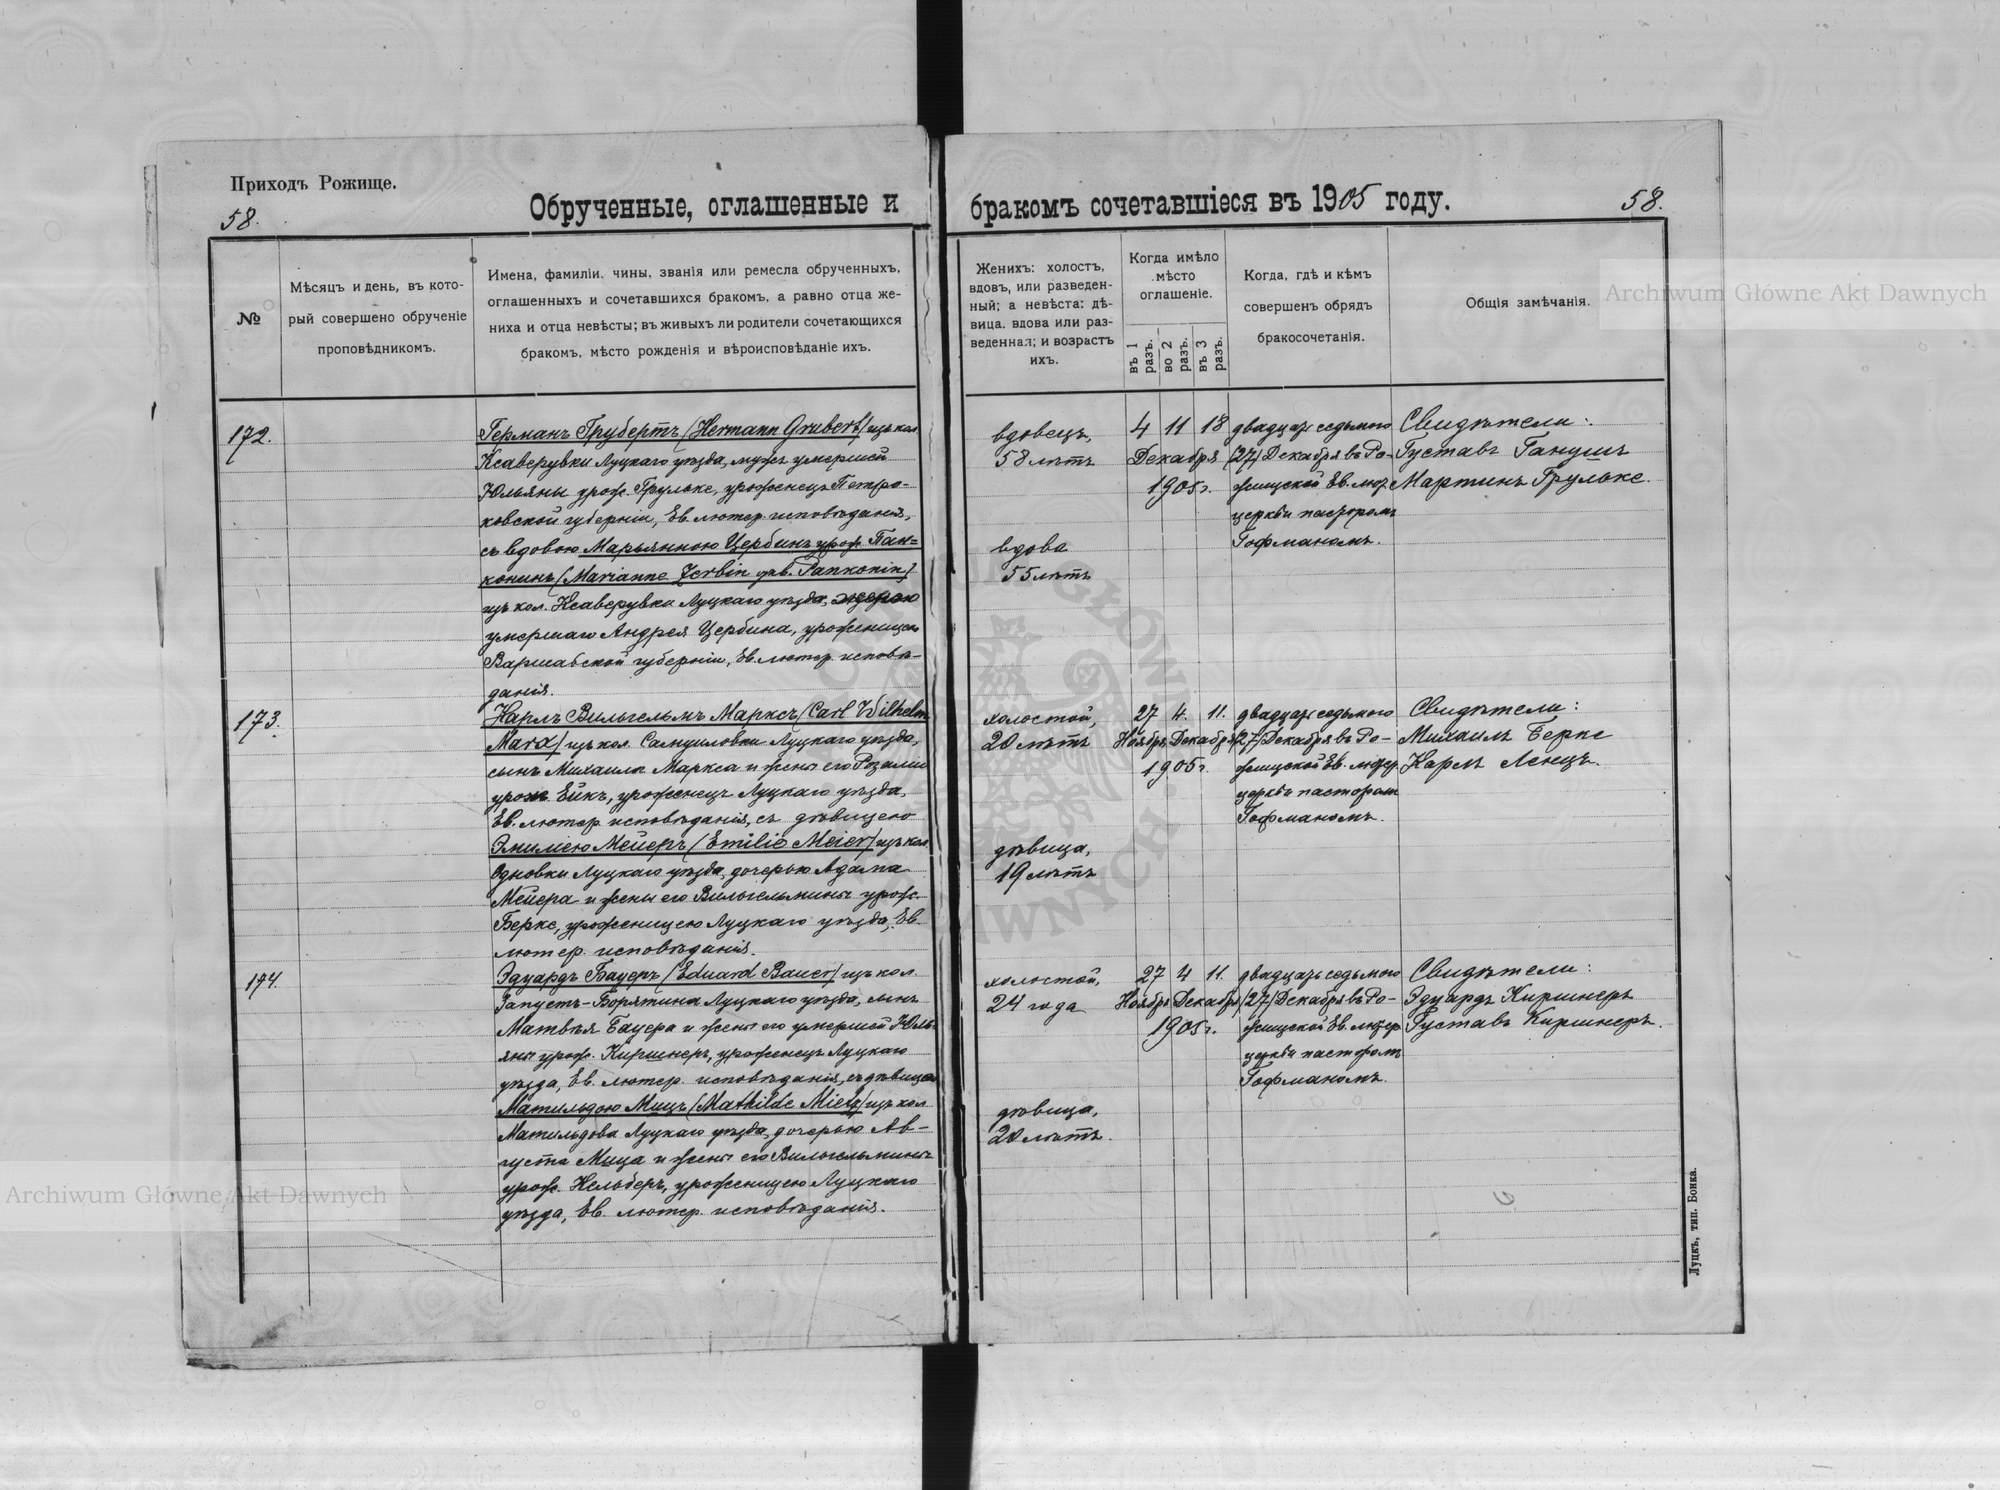 Приходъ Рожище.
58.
Обрученные, оглашенные и
бракомъ сочетавшіеся въ 1905 году.
58.
№
Мѣсяцъ и день, въ кото-
рый совершено обрученіе
проповѣдникомъ.
Имена, фамиліи. чины, званія или ремесла обрученныхъ,
оглашенныхъ и сочетавшихся бракомъ, а равно отца же-
ниха и отца невѣсты; въ живыхъ ли родители сочетающихся
бракомъ, мѣсто рожденія и вѣроисповѣданіе ихъ.
Женихъ: холостъ,
вдовъ, или разведен-
ный; а невѣста: дѣ-
вица, вдова или раз-
веденная; и возрастъ
ихъ.
Когда имѣло
мѣсто
оглашеніе.
въ 1 разъ.
во 2 разъ.
въ 3 разъ.
Когда, гдѣ и кѣмъ
совершенъ обрядъ
бракосочетанія.
Общія замѣчанія.
172.
Германъ Грубертъ (Hermann Grubert) изъ кол.
Ксаверувки Луцкаго уѣзда, мужъ умершей
Юльяны урож. Грульке, уроженецъ Петро-
ковской губерніи, Ев. лютер. исповѣданія,
съ вдовою Марьянною Цербинъ урож. Пан-
конинъ (Marianne Zerbin geb. Pankonin)
изъ кол. Ксаверувки Луцкаго уѣзда, женою
умершаго Андрея Цербина, уроженицею
Варшавской губерніи, Ев. лютер. исповѣ-
данія.
вдовецъ,
58 лѣтъ
вдова
55 лѣтъ
4 11 18
Декабря
1905 г.
двадцать седьмого
(27) Декабря въ Ро-
жищской Ев. лют.
церкви пасторомъ
Гофманомъ.
Свидѣтели:
Густавъ Ганушъ
Мартинъ Грульке.
173.
Карлъ Вильгельмъ Марксъ (Carl Wilhelm
Marx) изъ кол. Самуиловки Луцкаго уѣзда,
сынъ Михаила Маркса и жены его Розаліи
урож. Ейкъ, уроженецъ Луцкаго уѣзда,
Ев. лютер. исповѣданія, съ дѣвицею
Эмиліею Мейеръ (Emilie Meier) изъ кол.
Одновки Луцкаго уѣзда, дочерью Адама
Мейера и жены его Вильгельмины урож.
Берке, уроженицею Луцкаго уѣзда, Ев.
лютер. исповѣданія.
холостой,
20 лѣтъ
дѣвица,
19 лѣтъ
27 4. 11.
Ноября Декабря
1905 г.
двадцать седьмого
(27) Декабря въ Ро-
жищской Ев. лютер.
церкви пасторомъ
Гофманомъ.
Свидѣтели:
Михаилъ Берке
Карлъ Ленцъ.
174.
Эдуардъ Бауеръ (Eduard Bauer) изъ кол.
Запустъ-Борятина Луцкаго уѣзда, сынъ
Матвѣя Бауера и жены его умершей Юль-
яны урож. Киршнеръ, уроженецъ Луцкаго
уѣзда, Ев. лютер. исповѣданія, съ дѣвицею
Матильдою Мицъ (Mathilde Mietz) изъ кол.
Матильдова Луцкаго уѣзда, дочерью Ав-
густа Мица и жены его Вильгельмины
урож. Кельберъ, уроженицею Луцкаго
уѣзда, Ев. лютер. исповѣданія.
холостой,
24 года
дѣвица,
20 лѣтъ.
27 4 11.
Ноября Декабря
1905 г.
двадцать седьмого
(27) Декабря въ Ро-
жищской Ев. лютер.
церкви пасторомъ
Гофманомъ.
Свидѣтели:
Эдуардъ Киршнеръ
Густавъ Киршнеръ.
Луцкъ, тип. Бонка.
Archiwum Główne Akt Dawnych
Archiwum Główne Akt Dawnych